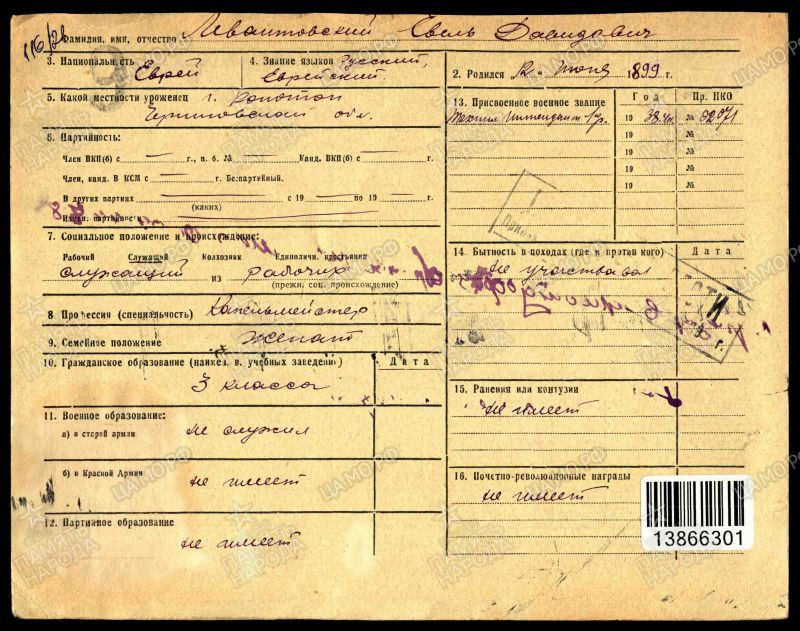 116/26
Фамилия, имя, отчество Леваитовский Евель Давидович
3. Национальность Еврей
4. Знание языков Русский, Еврейский
2. Родился 12 - июня 1899 г.
5. Какой местности уроженец г. Конотоп
Черниговской обл.
6. Партийность:
Член ВКП(б) с — г., п. б. № — Канд. ВКП(б) с — г.
Член, канд. В КСМ с — г. Беспартийный.
В других партиях — с 19 — по 19 — г.
(каких)
Измен. партийность
7. Социальное положение и происхождение:
Рабочий Служащий Колхозник Единоличн. крестьянин
служащий из рабочих
(прежн. соц. происхождение)
8. Профессия (специальность) Капельмейстер
9. Семейное положение женат
10. Гражданское образование (наивз. в. учебных заведений)
Дата
3 класса
11. Военное образование:
а) в старой армии не служил
б) в Красной Армии не имеет
12. Партийное образование
не имеет
13. Присвоенное военное звание
Год
Пр. НКО
Техник Интендант 1 р. 19 38 № 0207/1
19 №
19 №
19 №
19 №
14 Бытность в походах (где и против кого)
Дата
Не участвовал
15. Ранения или контузии
Дата
Не имеет
16. Почетно-революционные награды
не имеет
13866301
ПАМЯТЬ НАРОДА
ЦАМО.РФ